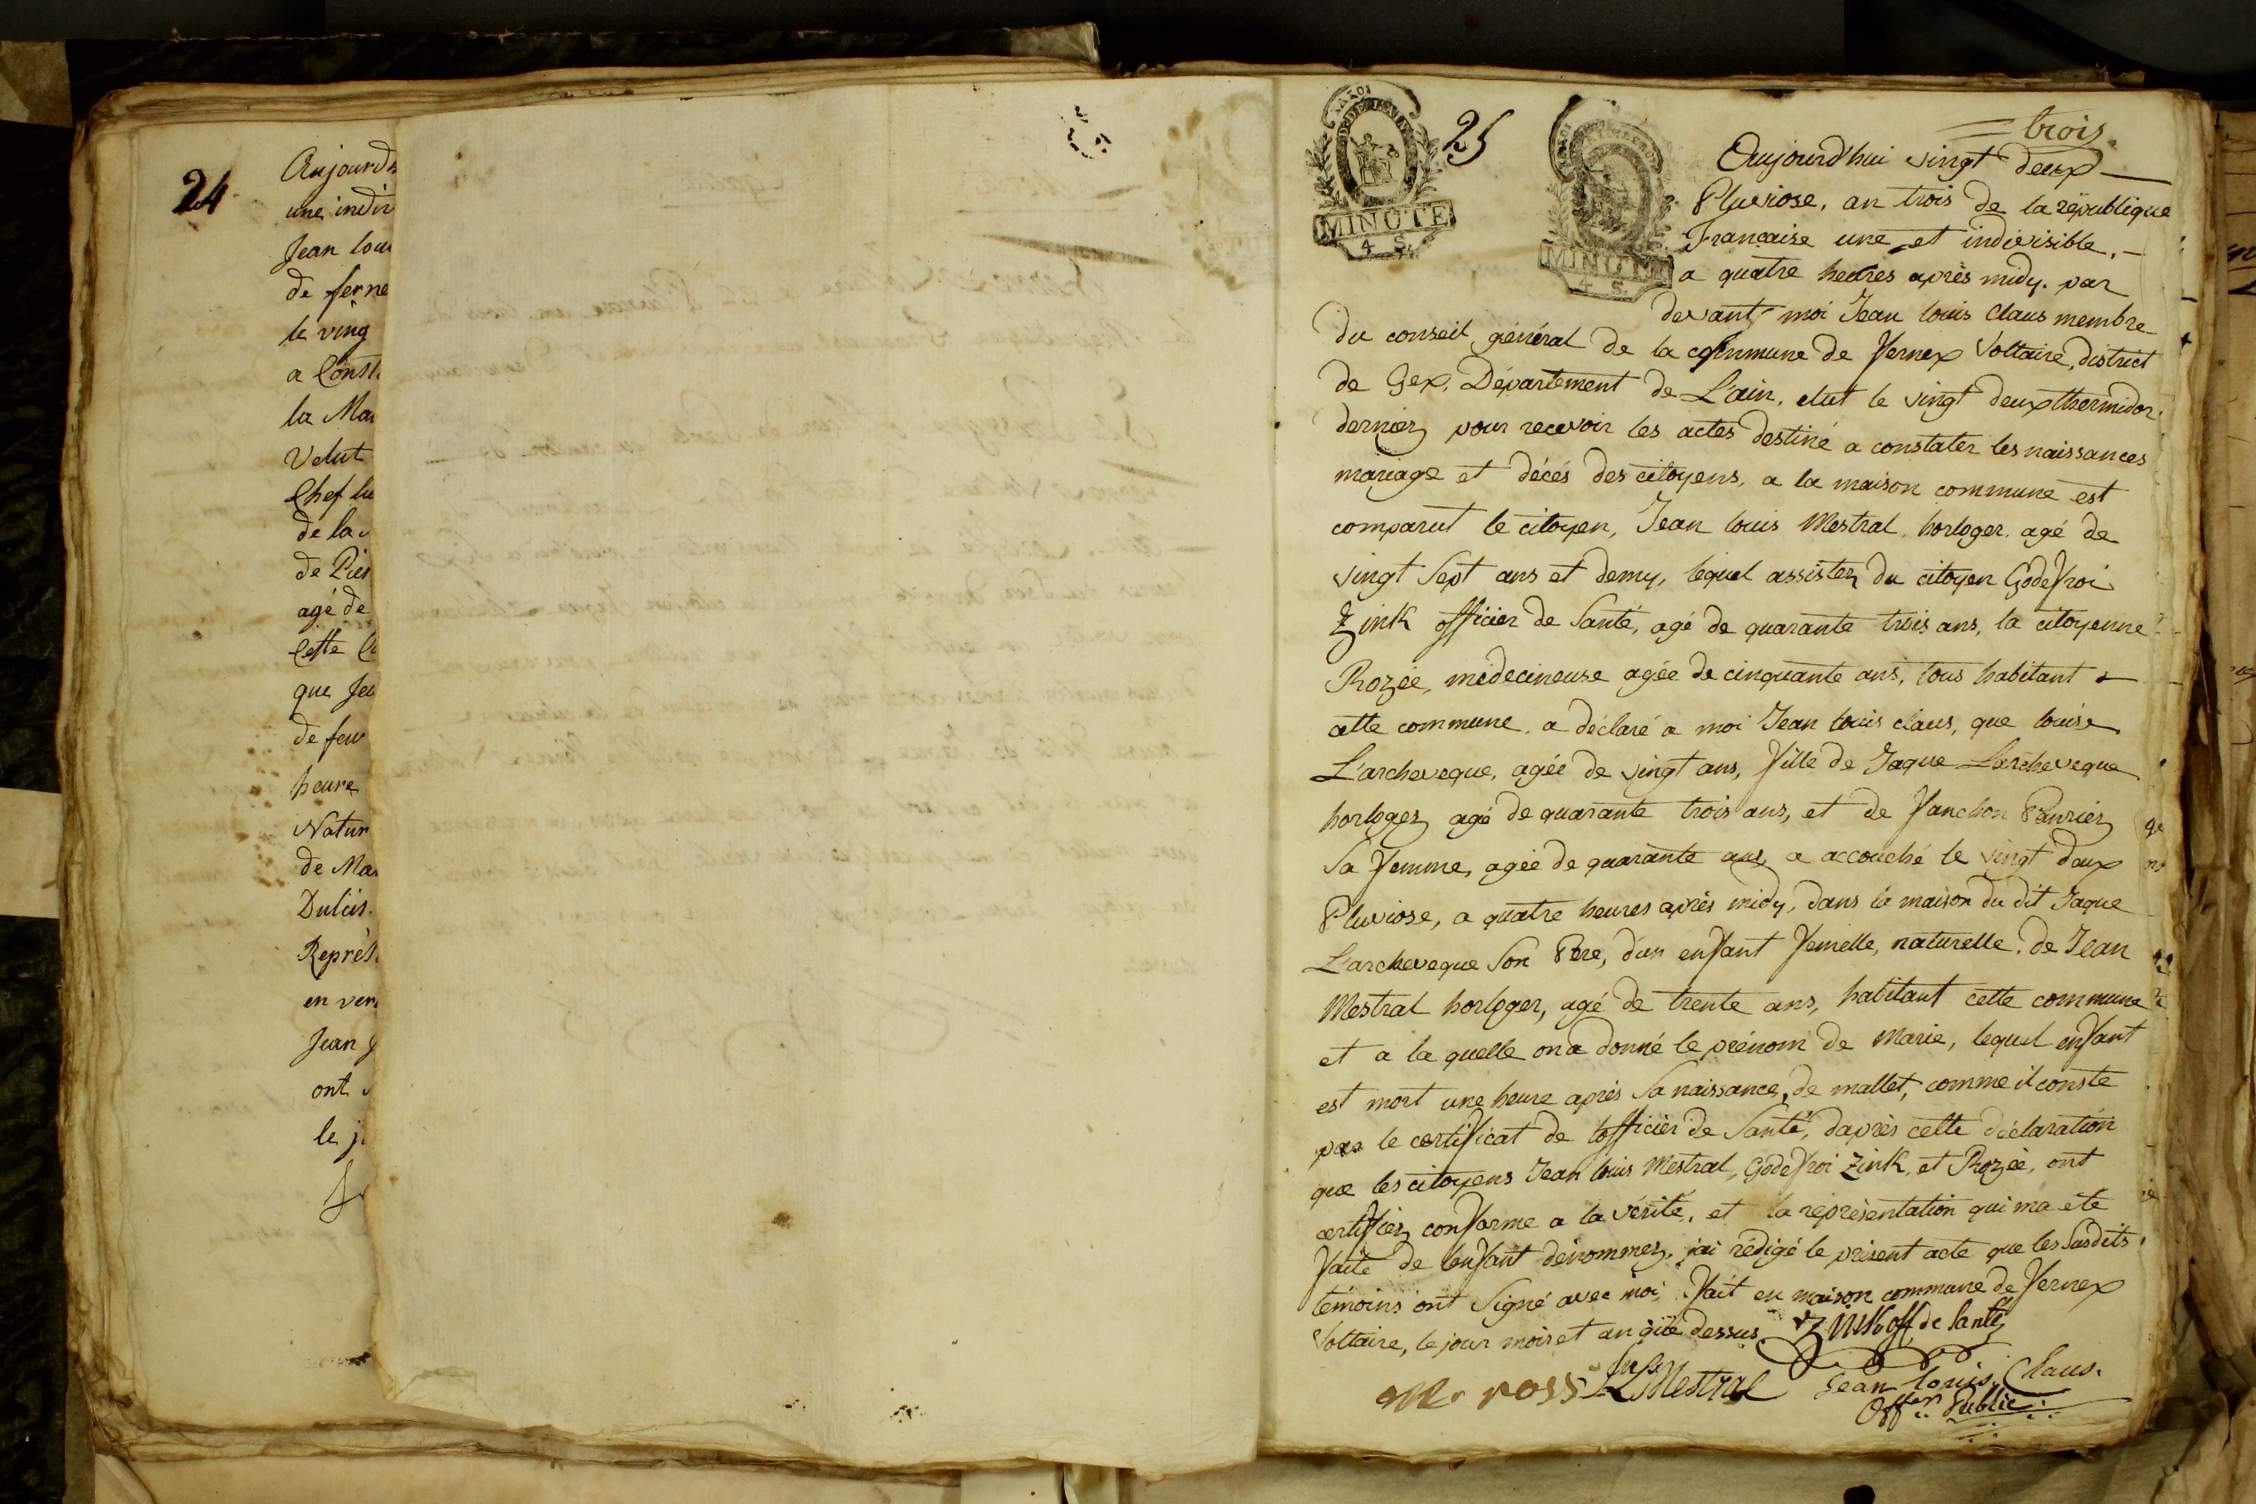 24
Aujourd
une indiv
Jean lou
de ferne
le ving
a Const
la Mai
Velut
Chef lie
de la
de Pier
agé de
Cette C
que Jea
de feu
heure
Natur
de Mar
Dulcis
Représ
en ver
Jean
ont
le j
25
MINUTE
4 S.
MINUTE
4 S.
trois
Aujourd'hui vingt deux
Pluviose, an trois de la république
Française une et indivisible,
a quatre heures après midy. par
devant moi Jean louis Claus membre
du conseil général de la commune de Fernex Voltaire, district
de Gex, Département de L'ain, elut le vingt deux thermidor
dernier, pour recevoir les actes destiné a constater les naissances
mariage et décés des citoyens, a la maison commune est
comparut le citoyen, Jean louis Mestral, horloger, agé de
vingt Sept ans et demy, lequel assistez du citoyen Godefroi
Zink officier de Santé, agé de quarante trois ans, la citoyenne
Rozée, médecineuse agée de cinquante ans, tous habitant
cette commune, a déclaré a moi Jean louis claus, que louise
L'archeveque, agée de vingt ans, fille de Jaque Larcheveque
horloger, agé de quarante trois ans, et de fanchon
Sa femme, agée de quarante ans, a accouché le vingt deux
Pluviose, a quatre heures après midy, dans la maison du dit Jaque
Larcheveque Son Père, d'un enfant femelle, naturelle, de Jean
Mestral horloger, agé de trente ans, habitant cette commune
et a la quelle on a donné le prénom de Marie, lequel enfant
est mort une heure après Sa naissance, de mallet, comme il conste
par le certificat de l'officier de Santé, daprès cette déclaration
que les citoyens Jean louis Mestral, Godefroi Zink, et Rozée, ont
certifier, conforme a la vérité, et la représentation qui ma été
faite de lenfant dénommez, jai rédigé le présent acte que les Susdits
témoins ont Signé avec moi, fait en maison commune de fernex
Voltaire, le jour mois et an dessus. Zink off de Santé
ross Ls Mestral Jean louis Claus.
Offer Public